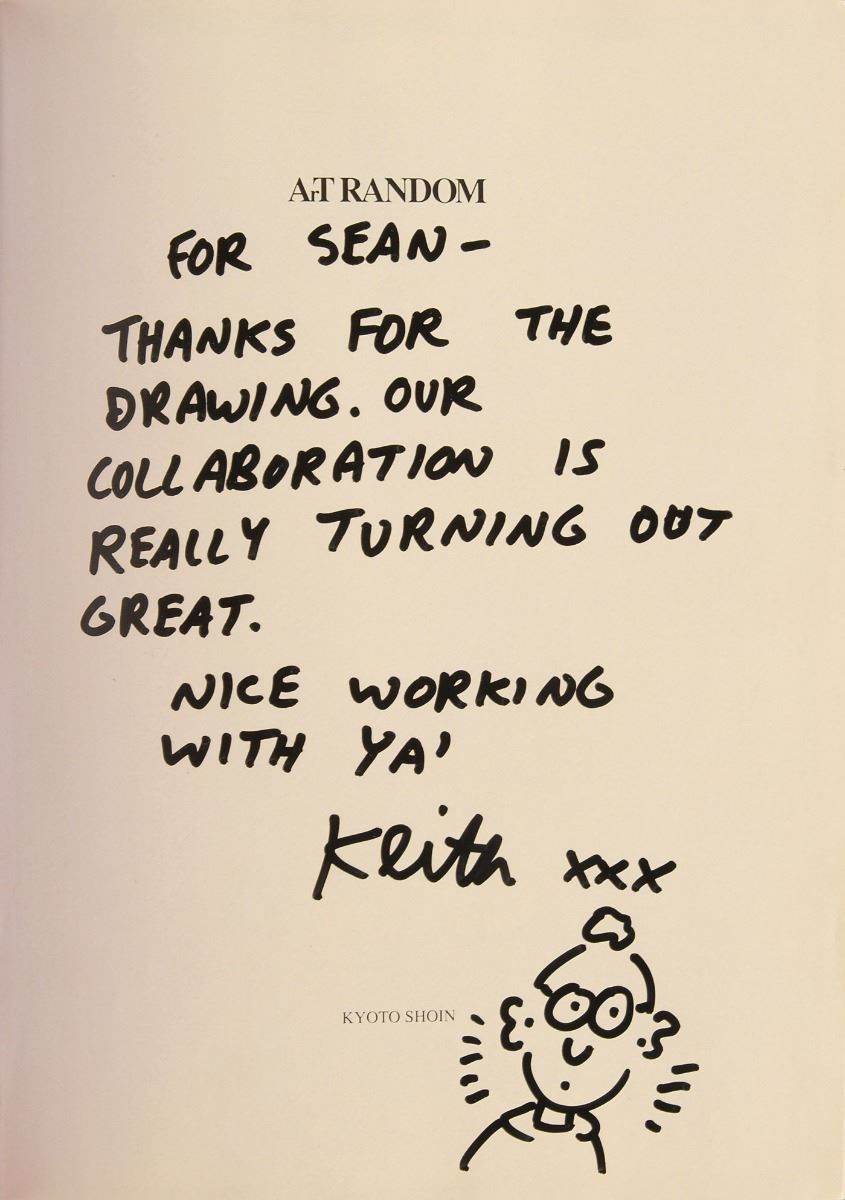 ArT RANDOM
FOR SEAN -
THANKS FOR THE
DRAWING. OUR
COLLABORATION IS
REALLY TURNING OUT
GREAT.
NICE WORKING
WITH YA'
Keith xxx
KYOTO SHOIN